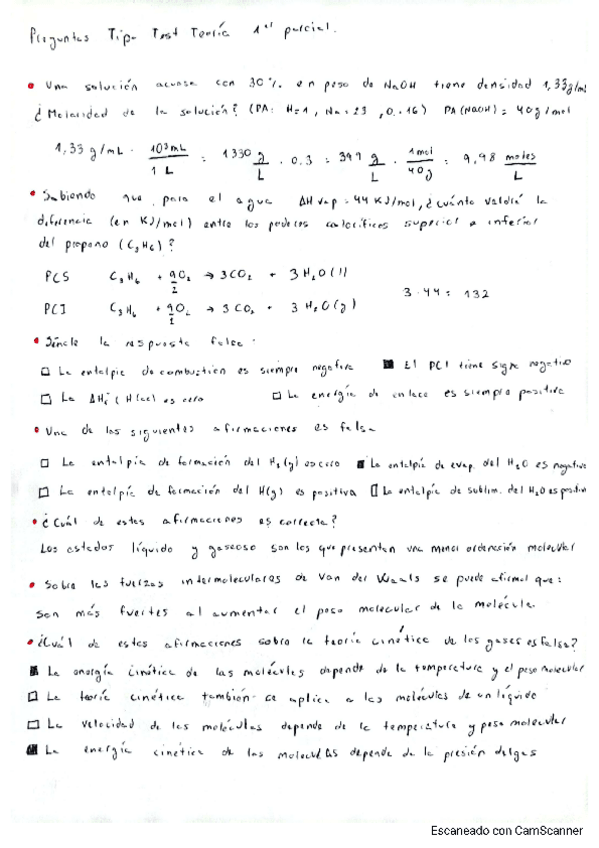 Preguntas Tipo Test Teoría 1er parcial.
• Una solución acuosa con 30% en peso de NaOH tiene densidad 1,33g/mL
¿Molaridad de la solución? (PA: H=1, Na=23, O=16) PA(NaOH)= 40g/mol
1,33 g/mL · 10³mL / 1 L = 1330 g/L · 0.3 = 399 g/L · 1mol / 40g = 9,98 moles/L
• Sabiendo que, para el agua ΔHvap = 44 KJ/mol, ¿cuánto valdrá la
diferencia (en KJ/mol) entre los poderes caloríficos superior e inferior
del propeno (C₃H₆)?
PCS C₃H₆ + 9/2 O₂ → 3CO₂ + 3H₂O(l)
PCI C₃H₆ + 9/2 O₂ → 3CO₂ + 3H₂O(g)
3·44 = 132
• Señale la respuesta falsa.
□ La entalpía de combustión es siempre negativa ■ El PCI tiene signo negativo
□ La ΔHf (H(ac)) es cero □ La energía de enlace es siempre positiva
• Una de las siguientes afirmaciones es falsa
□ La entalpía de formación del H₂(g) es cero ■ La entalpía de evap. del H₂O es negativa
□ La entalpía de formación del H(g) es positiva □ La entalpía de sublim. del H₂O es positiva
• ¿Cuál de estas afirmaciones es correcta?
Los estados líquido y gaseoso son los que presentan una menor ordenación molecular
• Sobre las fuerzas intermoleculares de Van der Waals se puede afirmar que:
son más fuertes al aumentar el peso molecular de la molécula.
• ¿Cuál de estas afirmaciones sobre la teoría cinética de los gases es falsa?
■ La energía cinética de las moléculas depende de la temperatura y el peso molecular
□ La teoría cinética también se aplica a las moléculas de un líquido
□ La velocidad de las moléculas depende de la temperatura y peso molecular
■ La energía cinética de las moléculas depende de la presión del gas
Escaneado con CamScanner